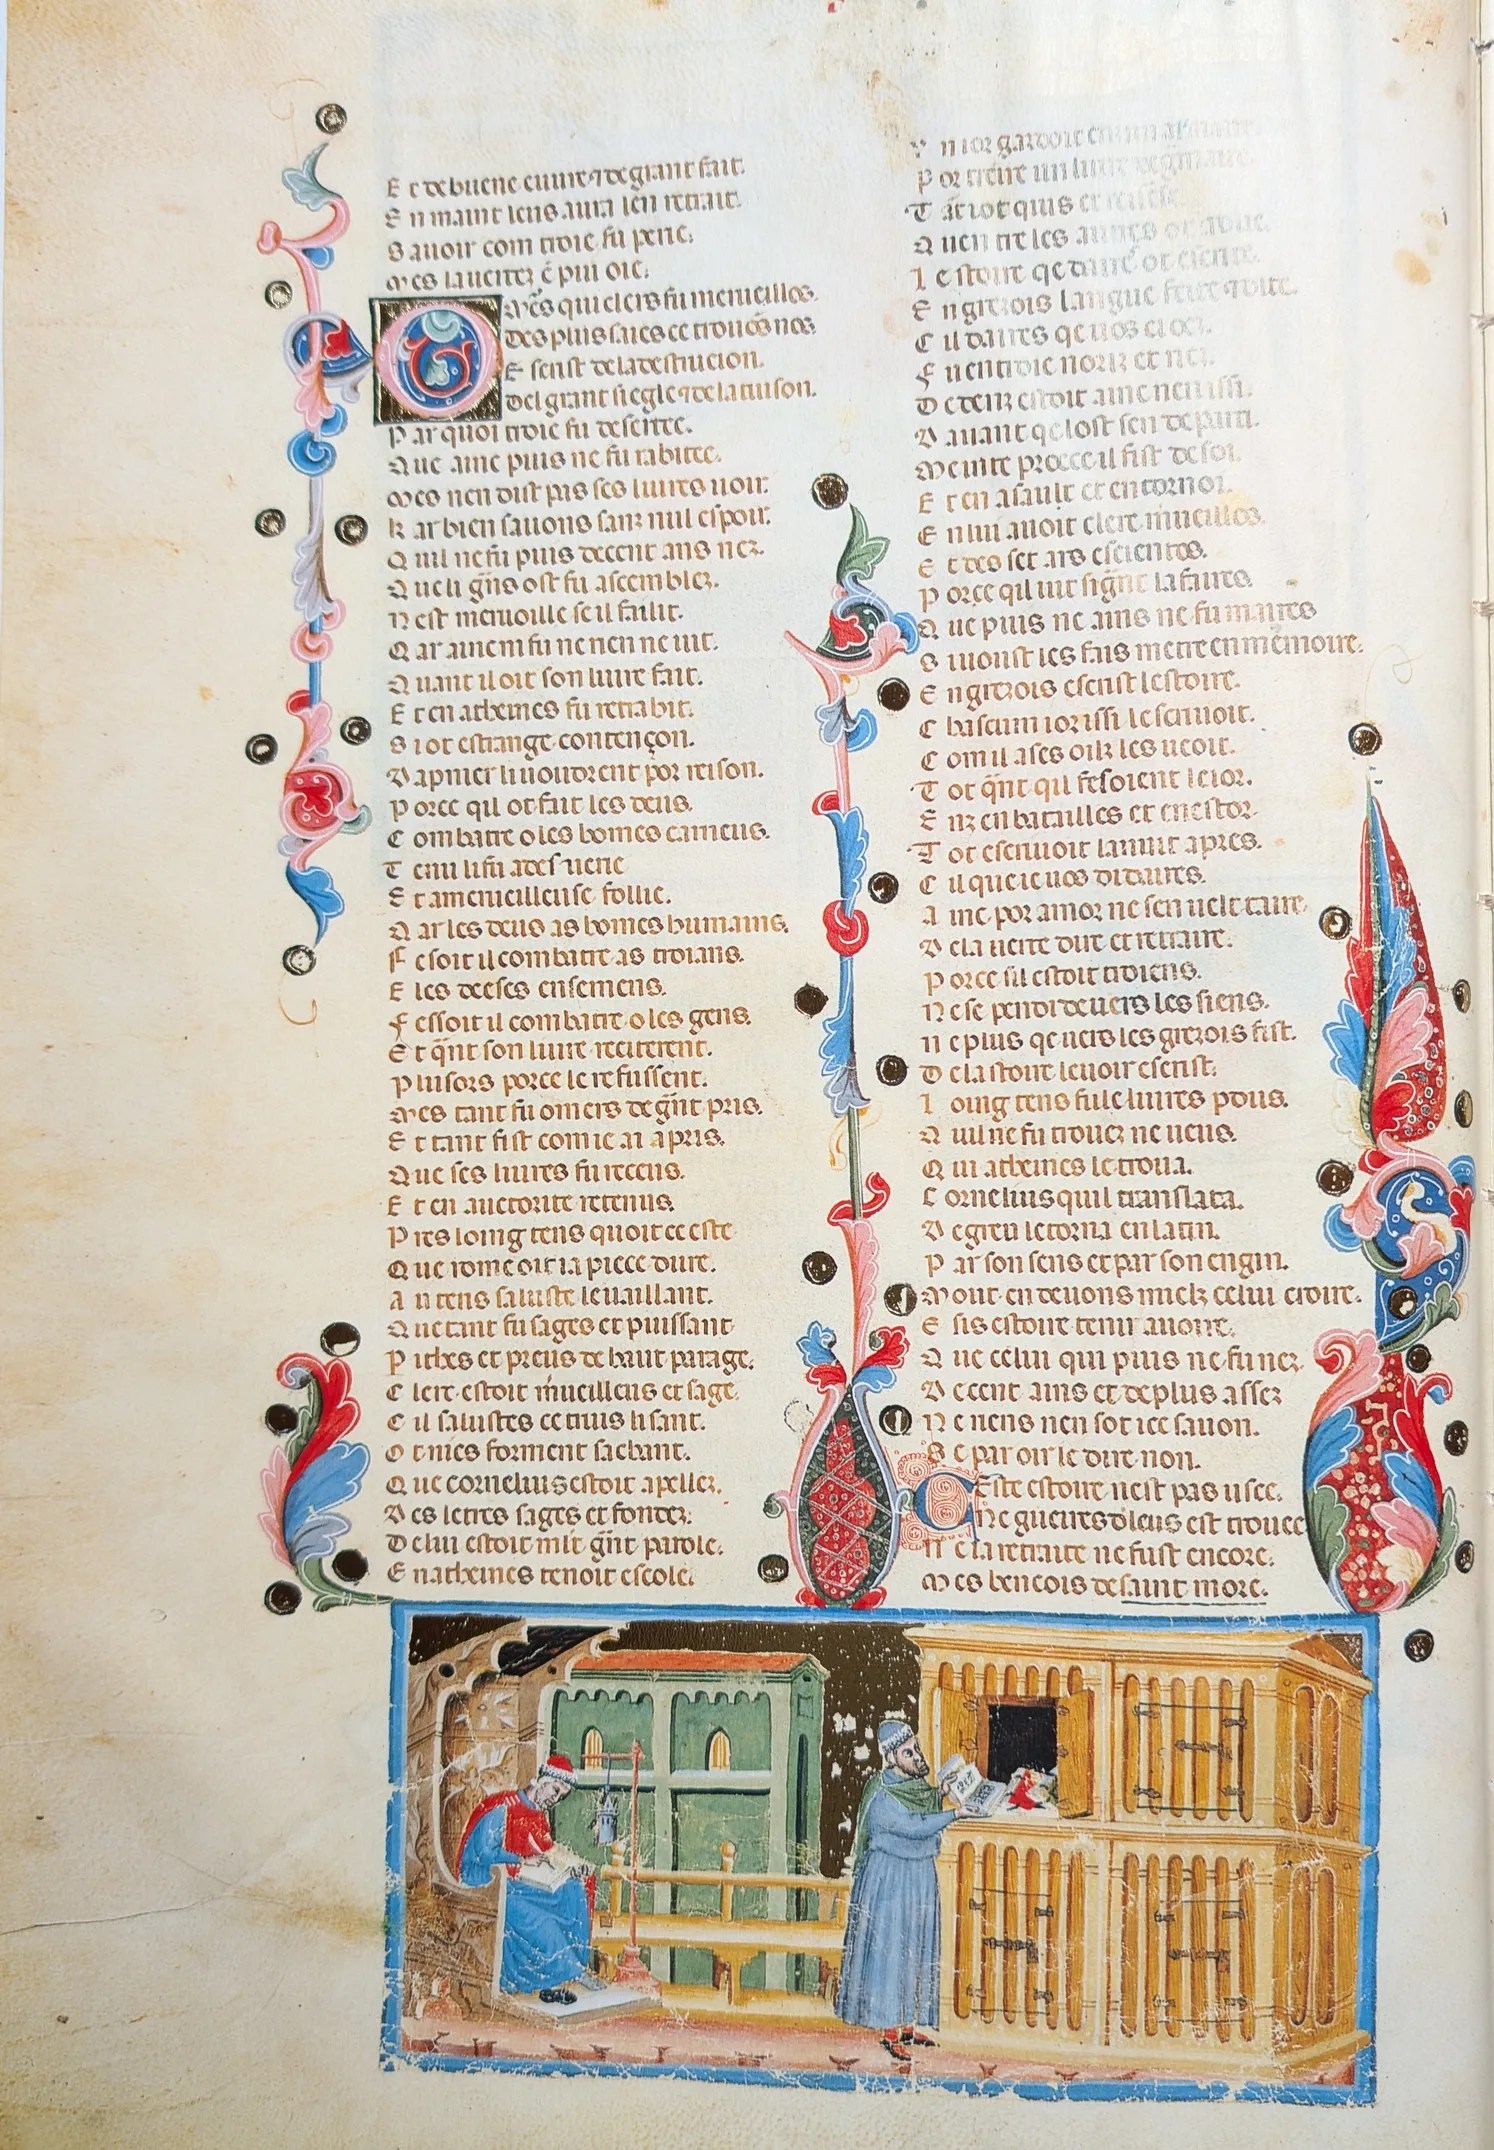 Et de buene euure ⁊ de grant fait.
En maint lens aura len retrait.
Sauoir com troie fu perie.
Mes la ueritez ē pui oie.
Omēs qui clers fu merueillos.
Des plus saies ce trouōs nos
Escrist de la destrucion.
Del grant siegle ⁊ de la
Par quoi troie fu deserte.
Que ainc puis ne fu rabitee.
Mes nen dist pas ses liures uoir.
Kar bien sauons sanz nul espoir.
Quil ne fu puis de cent ans nez.
Que li gn̄s ost fu asemblez.
Nest meruoille se il failit.
Qar ainc ni fu ne rien ne uit.
Quant il oit son liure fait.
Et en atheines fu retrahit.
Si ot estrange contençon.
Dapmer li uoudrent por reison.
Porce qil ot fait les deus.
Combatre o les homes carneus.
Tenu li fu a
Et a merueilleuse follie.
Qar les deus as homes humains.
Fesoit il combatre as troians.
E les deeses ensemens.
Fessoit il combatre o les gens.
Et qn̄t son liure reciterent.
Plusors porce le refussent.
Mes tant fu omers de gn̄t pris.
Et tant fist com ie ai apris.
Que ses liures fu receus.
Et en auctorite retenus.
Pres loing tens quoit ce este
Que rome oit ia piece dure.
Au tens saluste le uaillant.
Que tant fu sages et puissant
Riches et preus de haut parage.
Clerc estoit m̄ueilleus et sage.
Cil salustes ce truis lisant.
Ot nies forment sachant.
Que cornelius estoit apellez.
Des letres sages et fondez.
De lui estoit mlt gn̄t parole.
En atheines tenoit escole.
Un ior gardoit en un almaire.
Por treire un liure de gramaire.
Tāt iot quis et
Quen tre les autres ot
Lestoire qe daire ot escrite.
En grezois langue feite ⁊ dite.
Cil daires qe uos ci oez.
Fu en troie noriz et nez.
Dedenz estoit ainc nen issi.
Dauant qe lost sen departi.
Meinte proece il fist de soi.
Et en asault et en tornoi.
En lui auoit clerc m̄ueillos.
Et des set ars escientos.
Porce qil uit si gn̄t lafaires
Que puis ne ains ne fu maires
Si uoust les fais metre en memoire.
En grezois escrist lestoire.
Chascum ior issi lescriuoit.
Com il a ses oilz les ueoit.
Tot qn̄t qil fesoient le ior.
Enz en batailles et en estor.
Tot escriuoit la nuit apres.
Cil que ie uos di daires.
Ainc por amor ne sen uelt taire
De la uerite dire et retraire.
Porce sil estoit troiens.
Ne se pendi deuers les siens.
Ne plus qe uers les grezois fist.
De lastoire le uoir escrist.
Loing tens fu le liures pdus.
Quil ne fu trouez ne ueus.
Qui atheines le troua.
Cornelius quil translata.
De greu le torna en latin.
Par son sens et par son engin.
Mout en deuons mielz celui croire.
E sis estoire tenir a uoire.
Que celui qui puis ne fu nez
De cent ans et de plus assez
Ne riens nen sot ice sauon.
Se par oir le dire non.
Ceste estoire nest pas usee.
Ne gueires dleus est trouee
Ne la retraite ne fust encore.
Mes beneois de saint more.